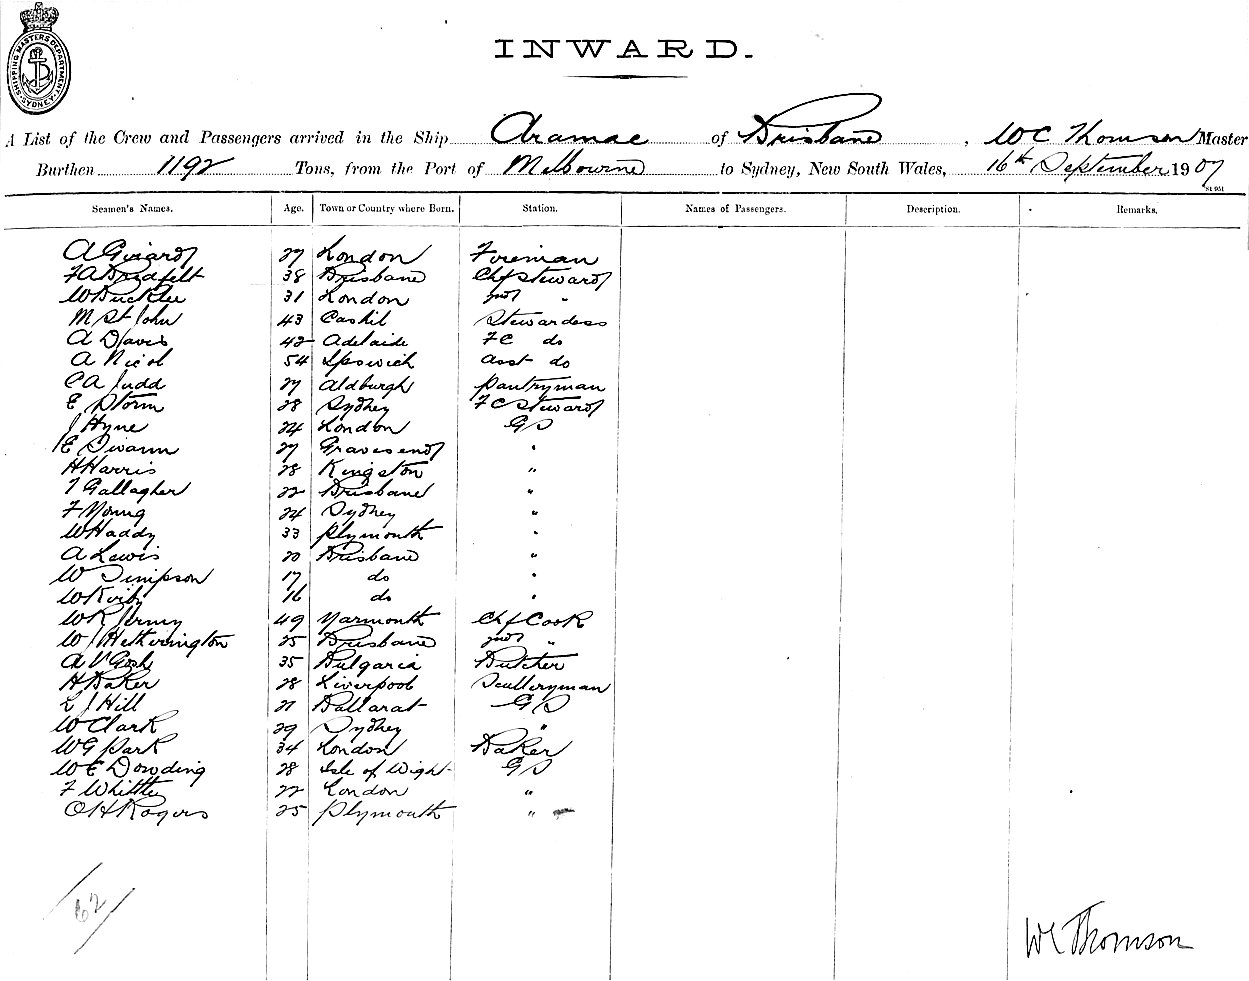 SHIPPING MASTERS DEPARTMENT. SYDNEY
INWARD.
A List of the Crew and Passengers arrived in the Ship Aramac of Brisbane, WC Thomson Master
Burthen 1192 Tons, from the Port of Melbourne to Sydney, New South Wales, 16th September 1907
Seamen's Names. Age. Town or Country where Born. Station. Names of Passengers. Description. Remarks.
A Girard 27 London Foreman
F A Bradfelt 38 Brisbane Chf Steward
W Bucklee 31 London 2nd "
M St John 43 Cashil Stewardess
A Davis 42 Adelaide FC do
A Nicol 54 Ipswich Asst do
C A Judd 27 Aldburgh Pantryman
E Storm 28 Sydney FC Steward
J Hyne 24 London GS
E Swann 27 Gravesend "
H Harris 28 Kingston "
T Gallagher 22 Brisbane "
F Young 24 Sydney "
W Haddy 33 Plymouth "
A Lewis 20 Brisbane "
W Simpson 17 do "
W Kirby 16 do "
W R Jermy 49 Yarmouth Chf Cook
W J Hetherington 25 Brisbane 2nd "
A V Gosh 35 Bulgaria Butcher
H Baker 28 Liverpool Sculleryman
L J Hill 21 Ballarat GS
W Clark 29 Sydney "
W G Park 34 London Baker
W E Dowding 28 Isle of Wight GS
F Whittle 22 London "
O H Rogers 25 Plymouth "
62
WC Thomson